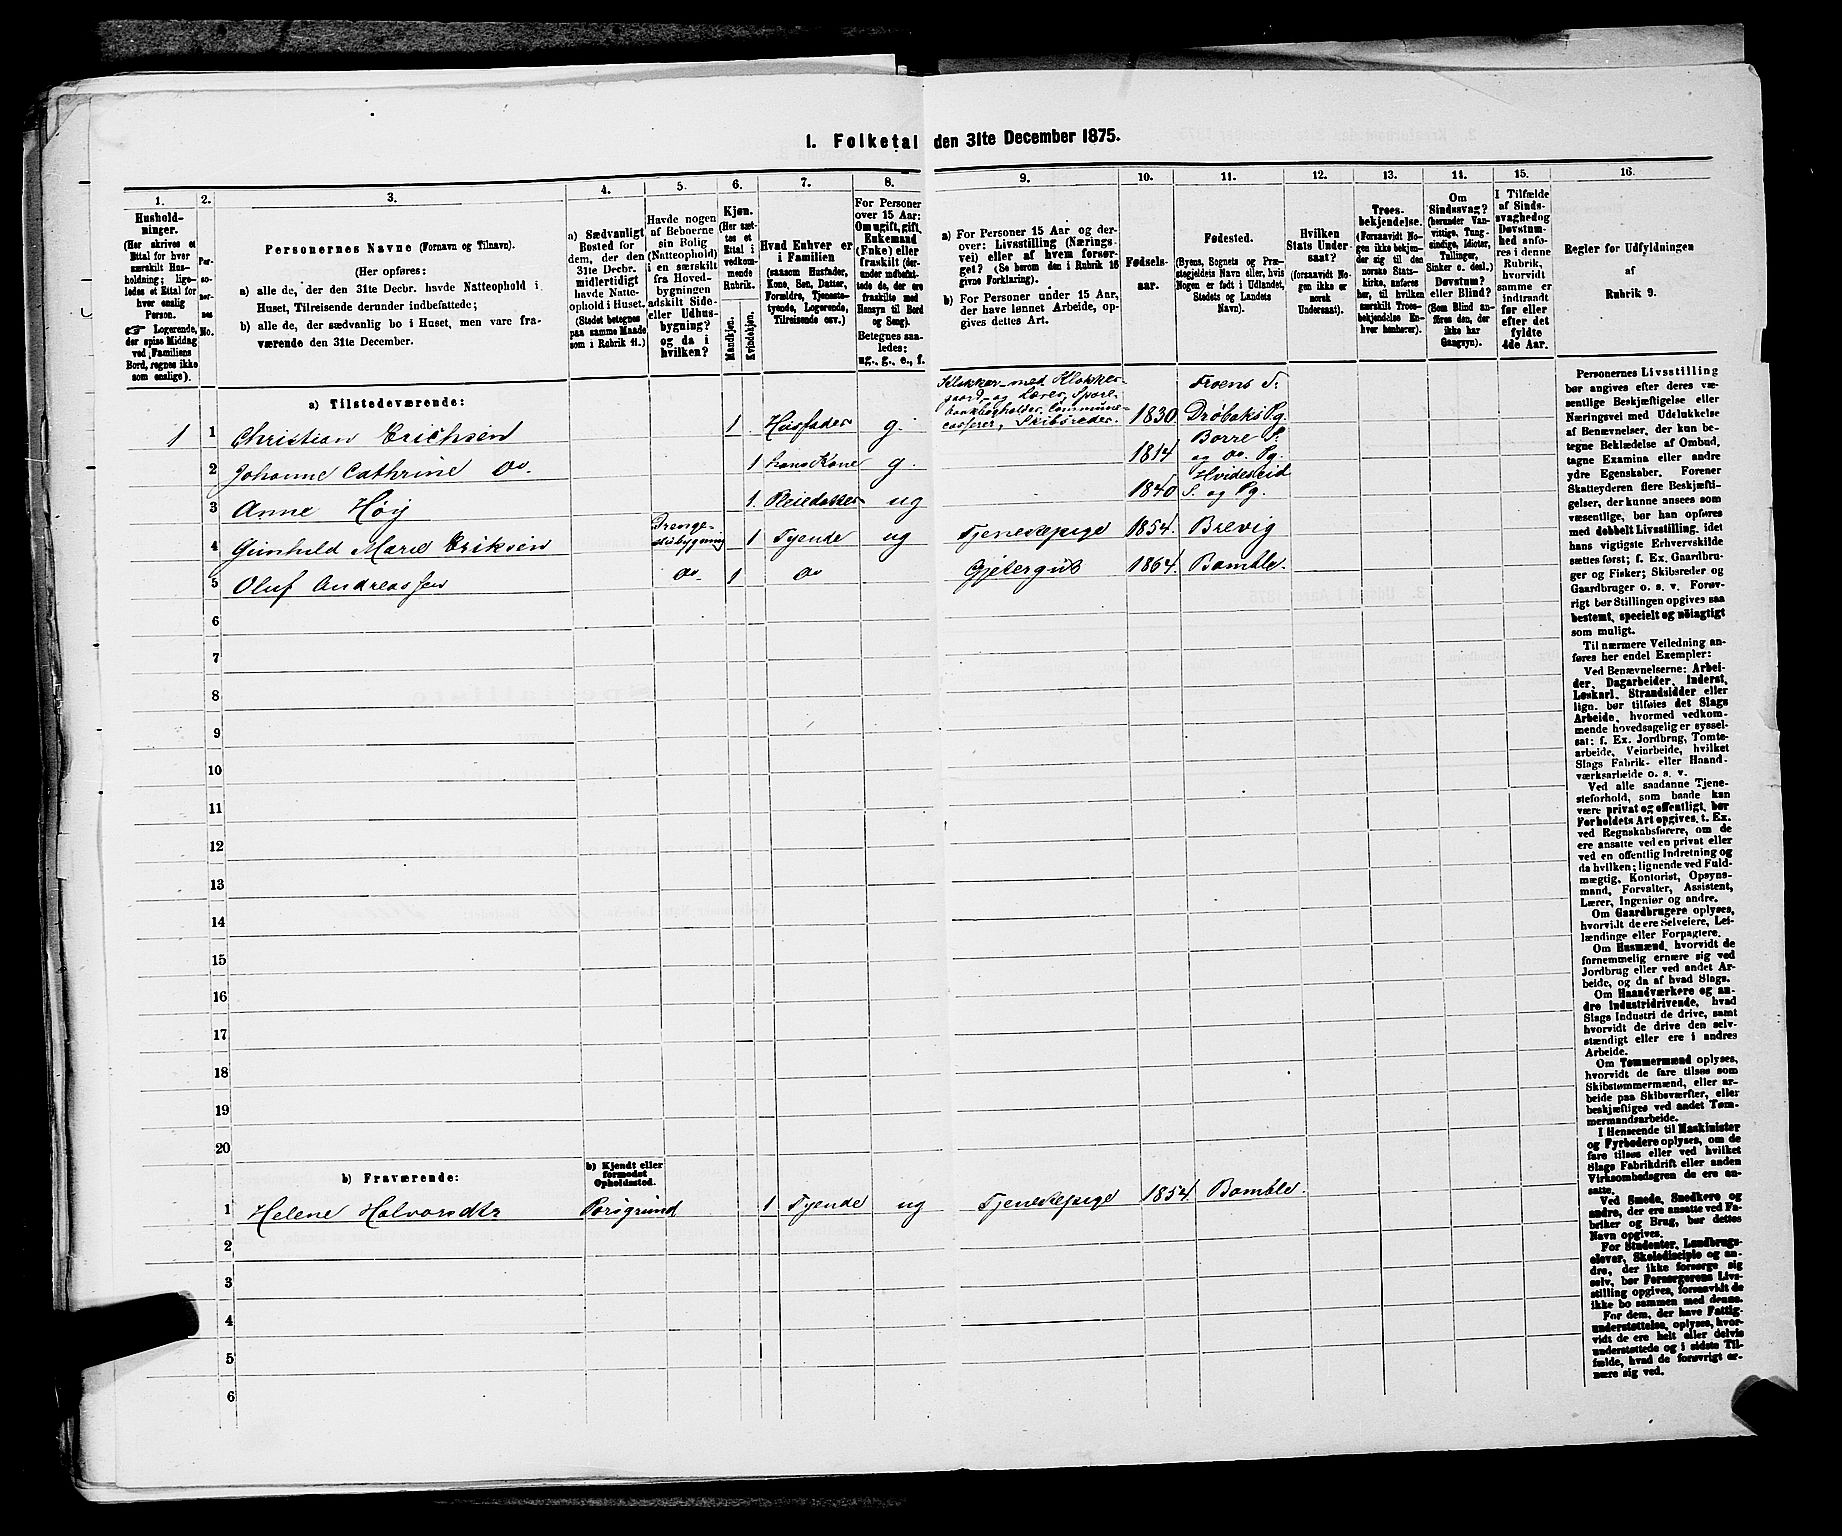 1. Folketal den 31te December 1875.
1. 2. 3. 4. 5. 6. 7. 8. 9. 10. 11. 12. 13. 14. 15. 16.
Hushold-
ninger.
(Her skrives et
Ettal for hver
særskilt Hus-
holdning; lige-
ledes et Ettal for
hver enslig
Person.
☛ Logerende,
der spise Middag
ved Familiens
Bord, regnes ikke
som enslige).
Per-
so-
ner-
nes
No.
Personernes Navne (Fornavn og Tilnavn).
(Her opføres:
a) alle de, der den 31te Decbr. havde Natteophold i
Huset, Tilreisende derunder indbefattede;
b) alle de, der sædvanlig bo i Huset, men vare fra-
værende den 31te December.
a) Sædvanligt
Bosted for
dem, der den
31te Decbr.
midlertidigt
havde Natte-
ophold i Huset.
(Stedet betegnes
paa samme Maade
som i Rubrik 11.)
Havde nogen
af Beboerne
sin Bolig
(Natteophold)
i en særskilt
fra Hoved-
bygningen
adskilt Side-
eller Udhus-
bygning?
og da i
hvilken?
Kjøn.
(Her sæt-
tes et
Ettal i
vedkom-
mende
Rubrik.
Mandkjøn.
Kvindekjøn.
Hvad Enhver er
i Familien
(saasom Husfader,
Kone, Søn, Datter,
Forældre, Tjeneste-
tyende, Logerende,
Tilreisende osv.)
For Personer
over 15 Aar:
Om ugift, gift,
Enkemand
(Enke) eller
fraskilt (der-
under indbefat-
tede de, der ere
fraskilte med
Hensyn til Bord
og Seng).
Betegnes saa-
ledes:
ug., g., e., f.
a) For Personer 15 Aar og der-
over: Livsstilling (Nærings-
vei) eller af hvem forsør-
get? (Se herom den i Rubrik 16
givne Forklaring).
b) For Personer under 15 Aar,
der have lønnet Arbeide, op-
gives dettes Art.
Fødsels-
aar.
Fødested.
(Byens, Sognets og Præ-
stegjeldets Navn eller, hvis
Nogen er født i Udlandet,
Stedets og Landets
Navn).
Hvilken
Stats Under-
saat?
(forsaavidt No-
gen ikke er
norsk
Undersaat).
Troes-
bekjendelse.
(Forsaavidt No-
gen ikke bekjen-
der sig til den
norske Stats-
kirke, anføres
her, til hvilken
særskilt Troes-
bekjendelse En-
hver henhører).
Om
Sindssvag?
(herunder Van-
vittige, Tung-
sindige, Idioter,
Tullinger,
Sinker o. desl.)
Døvstum?
eller Blind?
(Som Blind an-
føres den, der
ikke har
Gangsyn).
I Tilfælde
af Sinds-
svaghed og
Døvstum-
hed anfø-
res i denne
Rubrik,
hvorvidt
samme er
indtraadt
før eller
efter det
fyldte
4de Aar.
Regler for Udfyldningen
af
Rubrik 9.
a) Tilstedeværende:
Klokker med Klokker-
gaard og Lærer, Spare-
bankbogholder, Commune-
casserer, Skibsreder.
Froens S.
1 1 Christian Erichsen 1 Husfader g. 1830 Drøbaks Pg.
Borre S.
2 Johanne Cathrine Do. 1 hans Kone g. 1814 og do. Pg.
Hvideseid
3 Anne Høij 1. Pleiedatter ug 1840 S. og Pg.
Drenge-
stubygning
4 Gunhild Marie Eriksen 1 Tyende ug Tjenestepige 1854. Brevig
5 Oluf Andreassen Do. 1 Do Gjetergut 1864. Bamble.
6
7
8
9
10
11
12
13
14
15
16
17
18
19
20
b) Fraværende:
b) Kjendt eller
formodet
Opholdssted.
1 Helene Halvorsdtr Porsgrund 1 Tyende ug Tjenestepige 1854. Bamble.
2
3
4
5
6
Personernes Livsstilling
bør angives efter deres væ-
sentlige Beskjæftigelse eller
Næringsvei med Udelukkelse
af Benævnelser, der kun be-
tegne Beklædelse af Ombud,
tagne Examina eller andre
ydre Egenskaber. Forener
Skatteyderen flere Beskjæfti-
gelser, der kunne ansees som
væsentlige, bør han opføres
med dobbelt Livsstilling, idet
hans vigtigste Erhvervskilde
sættes først; f. Ex. Gaardbru-
ger og Fisker; Skibsreder og
Gaardbruger o. s. v. Forøv-
rigt bør Stillingen opgives saa
bestemt, specielt og nöiagtigt
som muligt.
Til nærmere Veiledning an-
føres her endel Exempler:
Ved Benævnelserne: Arbei-
der, Dagarbeider, Inderst,
Løskarl, Strandsidder eller
lign. bør tilføies det Slags
Arbeide, hvormed vedkom-
mende hovedsagelig er syssel-
sat; f. Ex. Jordbrug, Tomte-
arbeide, Veiarbeide, hvilket
Slags Fabrik- eller Haand-
værksarbeide o. s. v.
Ved alle saadanne Tjene-
steforhold, som baade kan
være privat og offentligt, bør
Forholdets Art opgives, t. Ex.
ved Regnskabsførere, om de
ere ansatte ved en privat eller
ved en offentlig Indretning og
da hvilken; lignende ved Fuld-
mægtig, Kontorist, Opsyns-
mand, Forvalter, Assistent,
Lærer, Ingeniør og andre.
Om Gaardbrugere oplyses,
hvorvidt de ere Selveiere, Lei-
lændinge eller Forpagtere.
Om Husmænd, hvorvidt de
fornemmelig ernære sig ved
Jordbrug eller ved andet Ar-
beide, og da af hvad Slags.
Om Haandværkere og an-
dre Industridrivende, hvad
Slags Industri de drive, samt
hvorvidt de drive den selv-
stændigt eller ere i andres
Arbeide.
Om Tømmermænd oplyses,
hvorvidt de fare tilsøs som
Skibstømmermænd, eller ar-
beide paa Skibsværfter, eller
beskjæftiges ved andet Tøm-
mermandsarbeide.
I Henseende til Maskinister
og Fyrbødere oplyses, om de
fare tilsøs eller ved hvilket
Slags Fabrikdrift eller anden
Virksomhedsgren de ere an-
satte.
Ved Smede, Snedkere og
andre, der ere ansatte ved Fa-
briker og Brug, bør dettes
Navn opgives.
For Studenter, Landbrugs-
elever, Skoledisciple og an-
dre, der ikke forsørge sig
selv, bør Forsørgerens Livs-
stilling opgives, forsaavidt de
ikke bo sammen med denne.
For dem, der have Fattig-
understøttelse, oplyses, hvor-
vidt de ere helt eller delvis
understøttede og i sidste Til-
fælde, hvad de forøvrigt er-
nære sig ved.